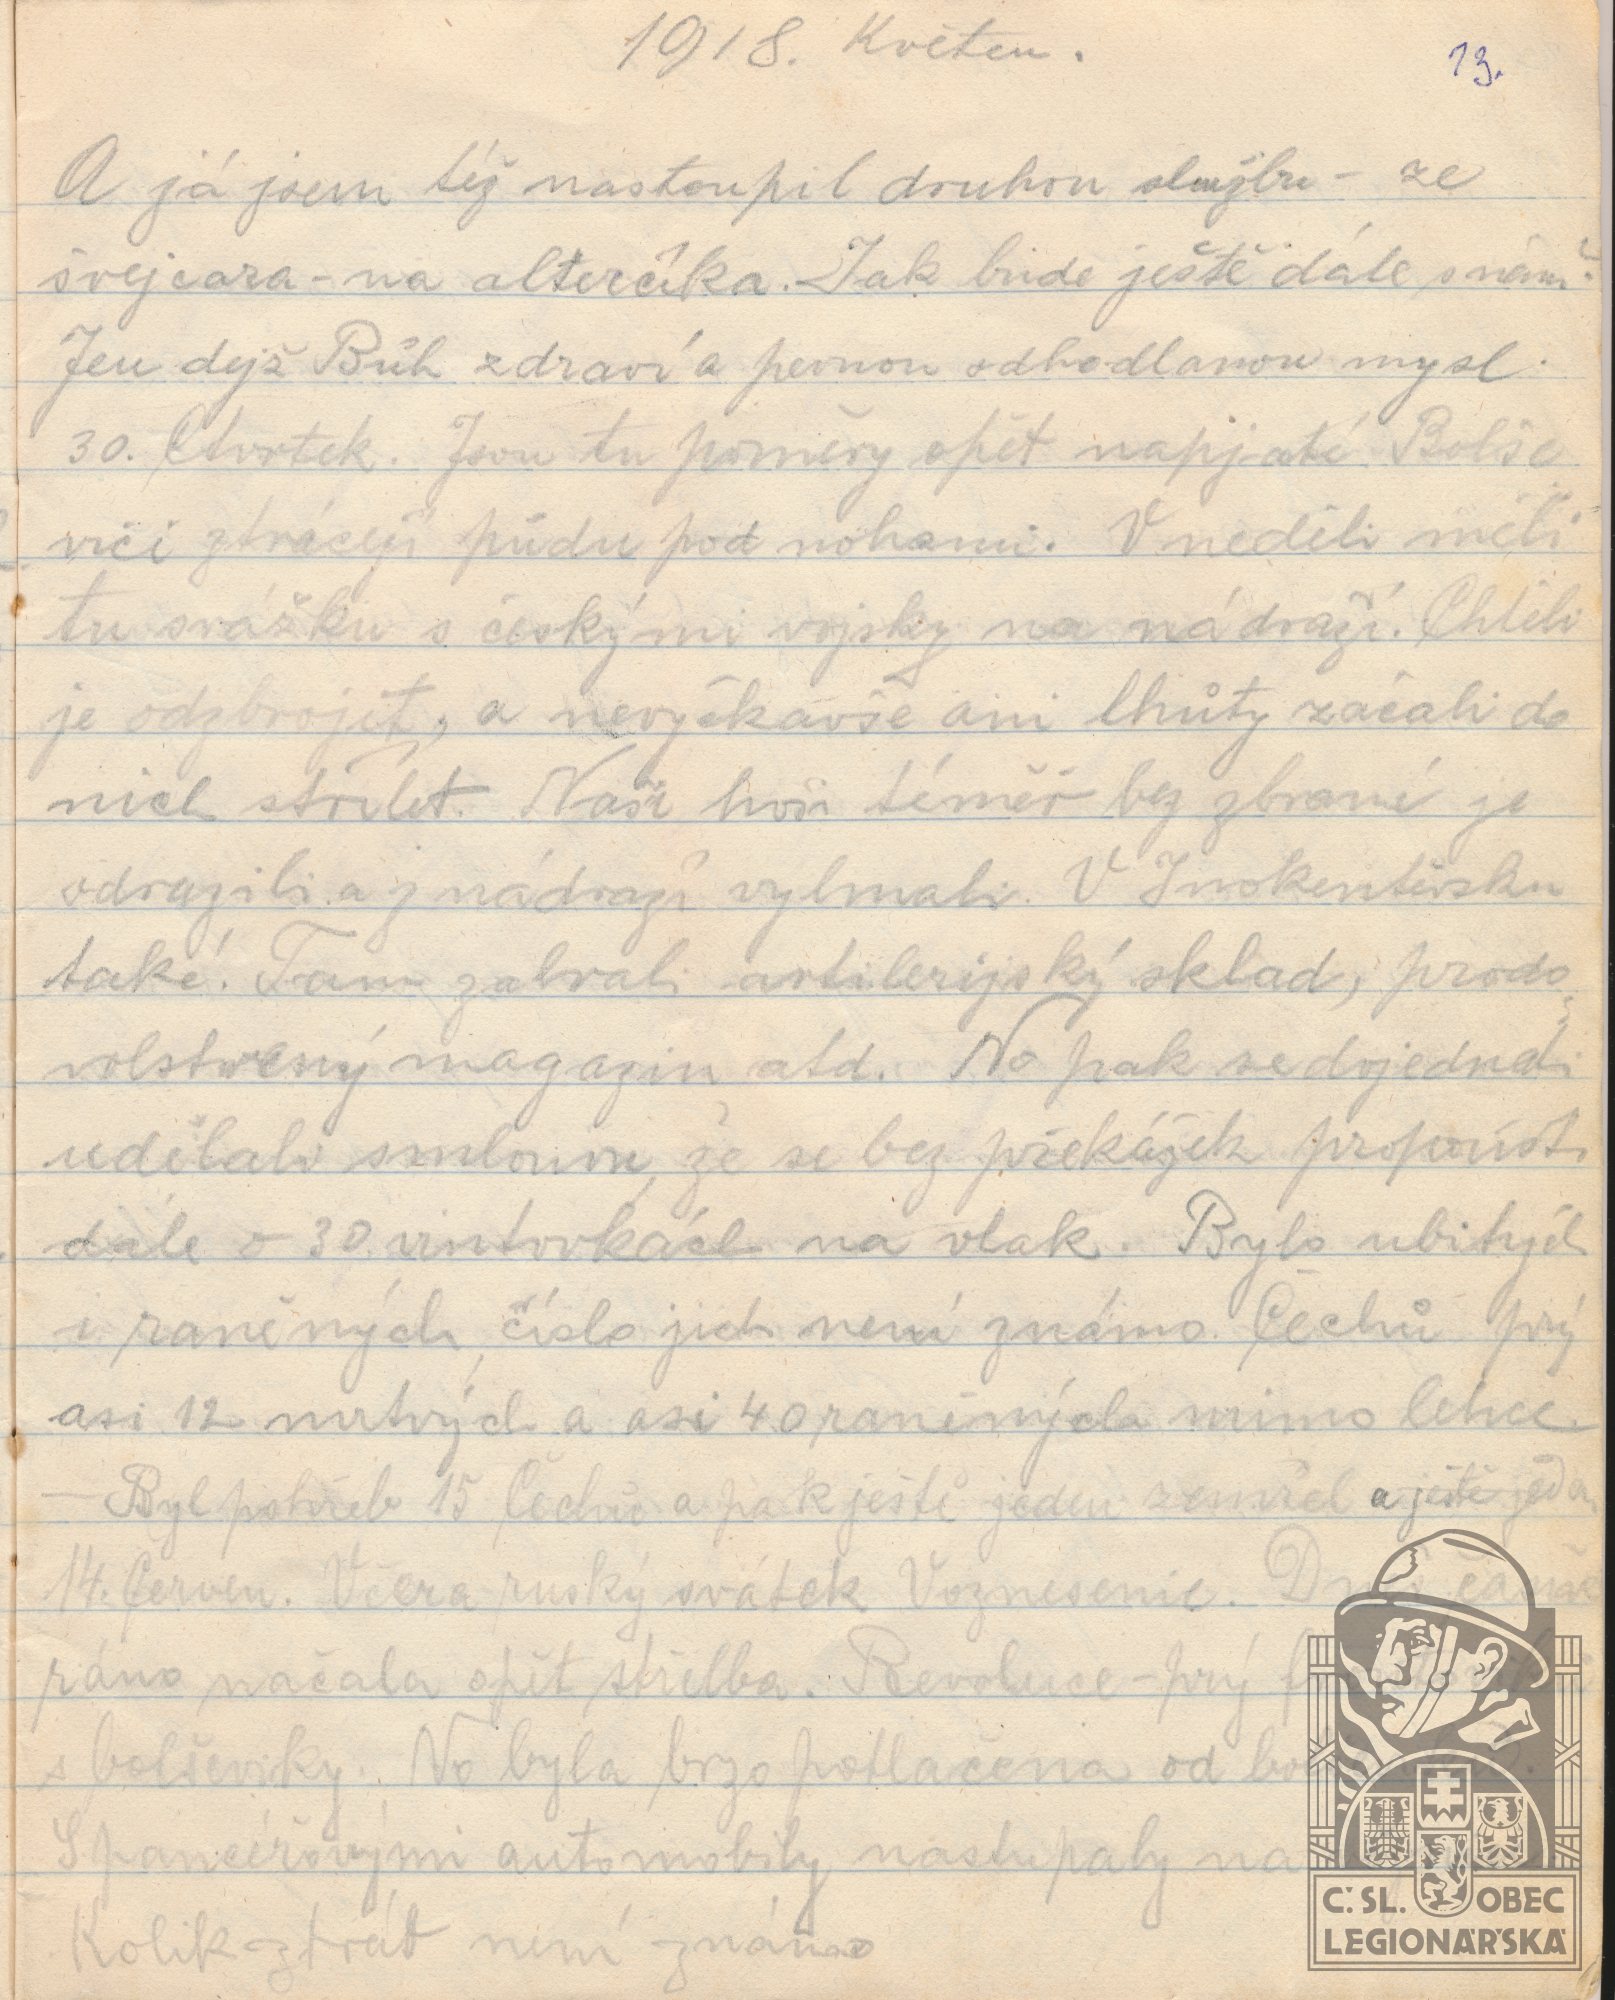 1918. Květen.
13.
A já jsem též nastoupil druhou službu - ze
švejcara - na alterčíka. Jak bude ještě dále s námi?
Jen dejž Bůh zdraví a pevnou odhodlanou mysl.
30. Čtvrtek. Jsou tu poměry opět napjaté Bolše
vici ztrácejí půdu pod nohami. V neděli měli
tu srážku s českými vojsky na nádraží. Chtěli
je odzbrojit, a nevyčkavše ani lhůty začali do
nich střílet. Naši hoši téměř bez zbraně je
odrazili a z nádraží vyhnali. V Inokentěvsku
také. Tam zabrali artilerijský sklad, prodo
volstvený magazin atd. No pak se dojednali
udělali smlouvu, že se bez překážek propustí
dále o 30 vintovkách na vlak. Bylo ubitých
i raněných, číslo jich není známo. Čechů prý
asi 12 mrtvých a asi 40 raněných mimo lehce.
— Byl pohřeb 15 Čechů a pak ještě jeden zemřel a ještě jeden
14. Červen. Včera ruský svátek Voznesenie. Dnes
ráno načala opět střelba. Revoluce - prý
s bolševiky. No byla brzo potlačena od
S pancéřovými automobily nastupaly na
Kolik ztrát není známo
Č.SL. OBEC
LEGIONÁŘSKÁ